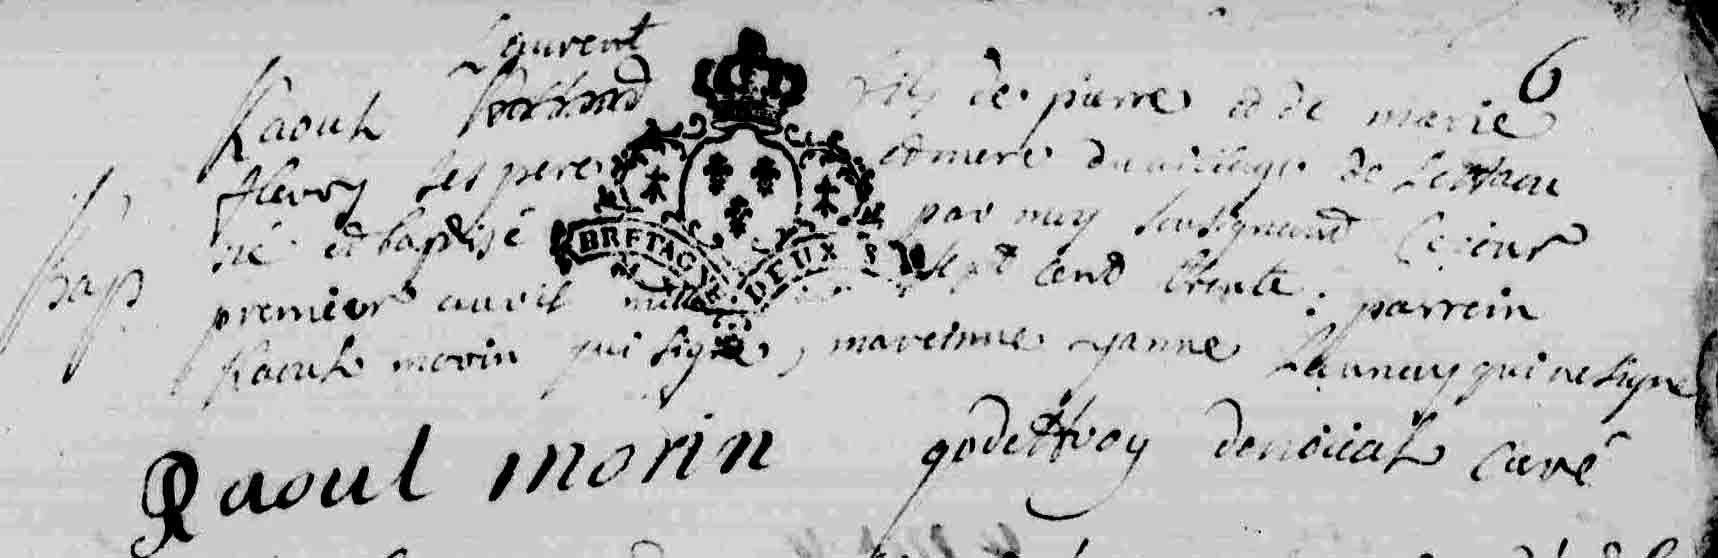 Laurent
6
Raoul fils de pierre et de marie
fleury ses pere et mere du village de
né et baptisé par moy soussignant ce jour
premier avril mille sept cent trente . parrein
bap
Raoul morin qui signe , mareinne janne Launay qui ne signe
Raoul morin godeffroy denoüal curé
BRETAGNE
DEUX S